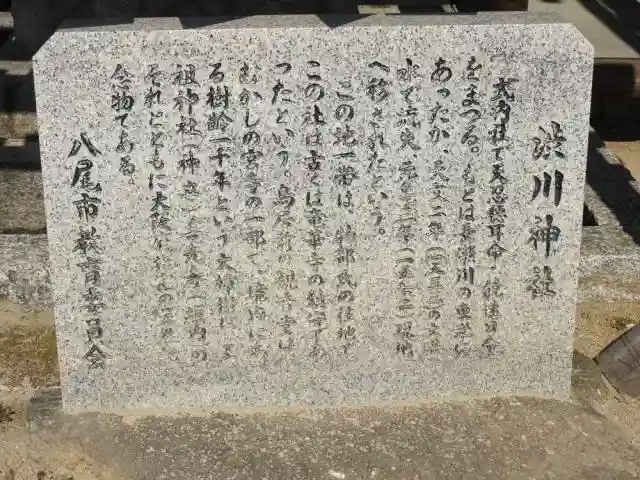 渋川神社
式内社で天忍穂耳命・饒速日命
をまつる。もとは長瀬川の東岸に
あったが、天文二年(一五三三)の大
水で流失、元亀三年(一五七二)現地
へ移されたという。
この地一帯は、物部氏の住地で
この社は古くは宝華寺の鎮守であ
ったという。鳥居前の観音堂は
むかしの宮寺の一部で、境内にあ
る樹齢一千年という大樟樹は
祖神社(神立)善光寺(垣内)の
それとともに大阪府
念物である。
八尾市教育委員会